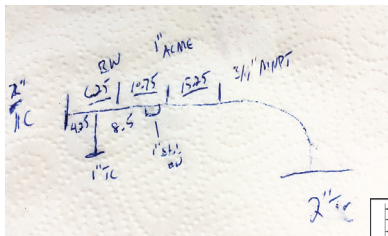 BW
1" ACME
2"
TC
6.25
10.75
15.25
3/4" MNPT
4.25
8.5
1" TC
2" TC